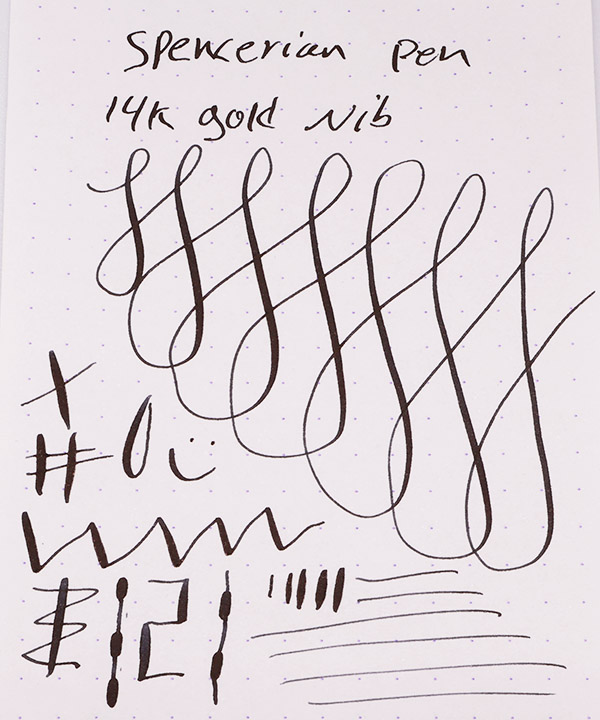 Spencerian Pen
14k gold Nib